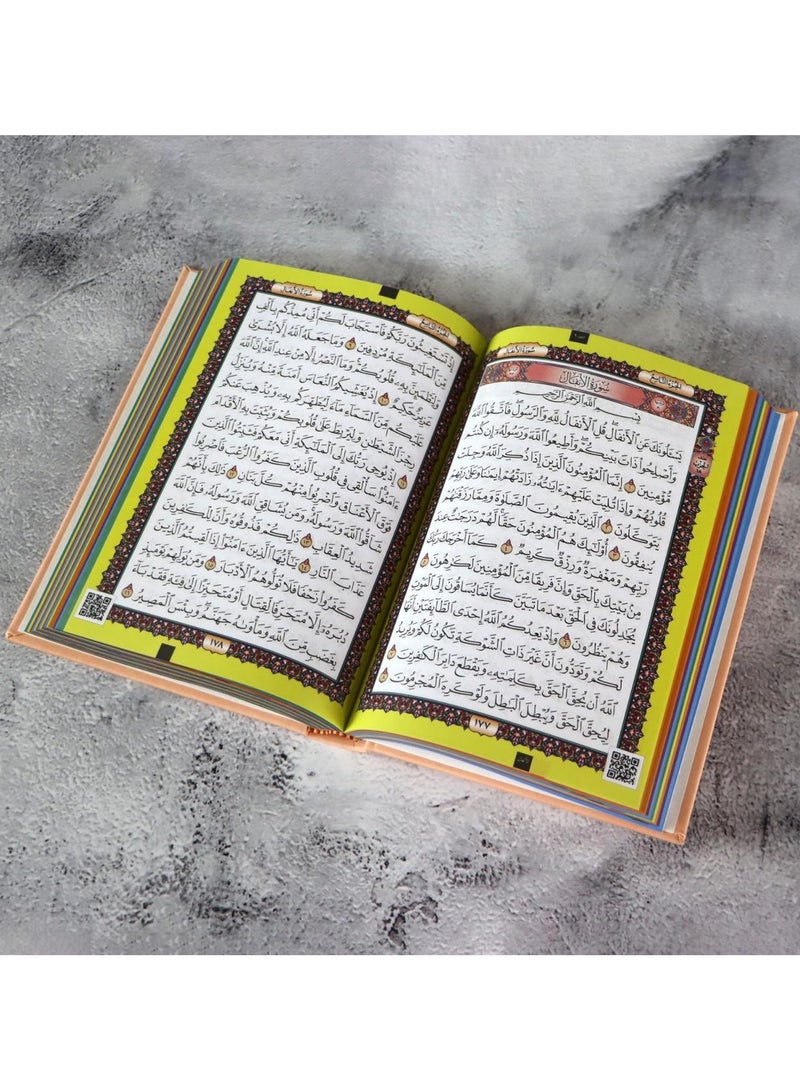 سُورَةُ الأَنفَالِ
الجُزْءُ التَّاسِعُ
سُورَةُ الأَنفَالِ
بِسْمِ اللَّهِ الرَّحْمَٰنِ الرَّحِيمِ
يَسْـَٔلُونَكَ عَنِ ٱلْأَنفَالِ ۖ قُلِ ٱلْأَنفَالُ لِلَّهِ وَٱلرَّسُولِ ۖ فَٱتَّقُوا۟ ٱللَّهَ
وَأَصْلِحُوا۟ ذَاتَ بَيْنِكُمْ ۖ وَأَطِيعُوا۟ ٱللَّهَ وَرَسُولَهُۥٓ إِن كُنتُم
مُّؤْمِنِينَ ١ إِنَّمَا ٱلْمُؤْمِنُونَ ٱلَّذِينَ إِذَا ذُكِرَ ٱللَّهُ وَجِلَتْ
قُلُوبُهُمْ وَإِذَا تُلِيَتْ عَلَيْهِمْ ءَايَٰتُهُۥ زَادَتْهُمْ إِيمَٰنًا وَعَلَىٰ رَبِّهِمْ
يَتَوَكَّلُونَ ٢ ٱلَّذِينَ يُقِيمُونَ ٱلصَّلَوٰةَ وَمِمَّا رَزَقْنَٰهُمْ
يُنفِقُونَ ٣ أُو۟لَٰٓئِكَ هُمُ ٱلْمُؤْمِنُونَ حَقًّا ۚ لَّهُمْ دَرَجَٰتٌ عِندَ
رَبِّهِمْ وَمَغْفِرَةٌ وَرِزْقٌ كَرِيمٌ ٤ كَمَآ أَخْرَجَكَ رَبُّكَ
مِنۢ بَيْتِكَ بِٱلْحَقِّ وَإِنَّ فَرِيقًا مِّنَ ٱلْمُؤْمِنِينَ لَكَٰرِهُونَ ٥
يُجَٰدِلُونَكَ فِى ٱلْحَقِّ بَعْدَ مَا تَبَيَّنَ كَأَنَّمَا يُسَاقُونَ إِلَى ٱلْمَوْتِ
وَهُمْ يَنظُرُونَ ٦ وَإِذْ يَعِدُكُمُ ٱللَّهُ إِحْدَى ٱلطَّآئِفَتَيْنِ أَنَّهَا
لَكُمْ وَتَوَدُّونَ أَنَّ غَيْرَ ذَاتِ ٱلشَّوْكَةِ تَكُونُ لَكُمْ وَيُرِيدُ
ٱللَّهُ أَن يُحِقَّ ٱلْحَقَّ بِكَلِمَٰتِهِۦ وَيَقْطَعَ دَابِرَ ٱلْكَٰفِرِينَ ٧
لِيُحِقَّ ٱلْحَقَّ وَيُبْطِلَ ٱلْبَٰطِلَ وَلَوْ كَرِهَ ٱلْمُجْرِمُونَ ٨
١٧٧
سُورَةُ الأَنفَالِ
الجُزْءُ التَّاسِعُ
إِذْ تَسْتَغِيثُونَ رَبَّكُمْ فَٱسْتَجَابَ لَكُمْ أَنِّى مُمِدُّكُم بِأَلْفٍ
مِّنَ ٱلْمَلَٰٓئِكَةِ مُرْدِفِينَ ٩ وَمَا جَعَلَهُ ٱللَّهُ إِلَّا بُشْرَىٰ
وَلِتَطْمَئِنَّ بِهِۦ قُلُوبُكُمْ ۚ وَمَا ٱلنَّصْرُ إِلَّا مِنْ عِندِ ٱللَّهِ ۚ إِنَّ ٱللَّهَ
عَزِيزٌ حَكِيمٌ ١٠ إِذْ يُغَشِّيكُمُ ٱلنُّعَاسَ أَمَنَةً مِّنْهُ وَيُنَزِّلُ
عَلَيْكُم مِّنَ ٱلسَّمَآءِ مَآءً لِّيُطَهِّرَكُم بِهِۦ وَيُذْهِبَ عَنكُمْ
رِجْزَ ٱلشَّيْطَٰنِ وَلِيَرْبِطَ عَلَىٰ قُلُوبِكُمْ وَيُثَبِّتَ بِهِ ٱلْأَقْدَامَ
١١ إِذْ يُوحِى رَبُّكَ إِلَى ٱلْمَلَٰٓئِكَةِ أَنِّى مَعَكُمْ فَثَبِّتُوا۟ ٱلَّذِينَ
ءَامَنُوا۟ ۚ سَأُلْقِى فِى قُلُوبِ ٱلَّذِينَ كَفَرُوا۟ ٱلرُّعْبَ فَٱضْرِبُوا۟
فَوْقَ ٱلْأَعْنَاقِ وَٱضْرِبُوا۟ مِنْهُمْ كُلَّ بَنَانٍ ١٢ ذَٰلِكَ بِأَنَّهُمْ
شَآقُّوا۟ ٱللَّهَ وَرَسُولَهُۥ ۚ وَمَن يُشَاقِقِ ٱللَّهَ وَرَسُولَهُۥ فَإِنَّ ٱللَّهَ
شَدِيدُ ٱلْعِقَابِ ١٣ ذَٰلِكُمْ فَذُوقُوهُ وَأَنَّ لِلْكَٰفِرِينَ
عَذَابَ ٱلنَّارِ ١٤ يَٰٓأَيُّهَا ٱلَّذِينَ ءَامَنُوٓا۟ إِذَا لَقِيتُمُ ٱلَّذِينَ
كَفَرُوا۟ زَحْفًا فَلَا تُوَلُّوهُمُ ٱلْأَدْبَارَ ١٥ وَمَن يُوَلِّهِمْ يَوْمَئِذٍ
دُبُرَهُۥٓ إِلَّا مُتَحَرِّفًا لِّقِتَالٍ أَوْ مُتَحَيِّزًا إِلَىٰ فِئَةٍ فَقَدْ بَآءَ
بِغَضَبٍ مِّنَ ٱللَّهِ وَمَأْوَىٰهُ جَهَنَّمُ ۖ وَبِئْسَ ٱلْمَصِيرُ ١٦
١٧٨